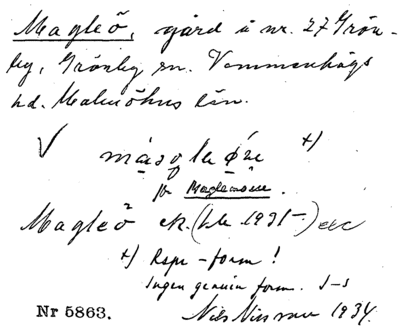 Magleö, gård å nr. 27 Grön-
by, Grönby sn. Vemmenhögs
hd. Malmöhus län.
√ +)
på Maglemosse.
Magleö ek. (bl. 1931-) etc
+) Rspr-form!
Ingen genuin form. I-s
Nr 5863. Nils Nilsson 1934.